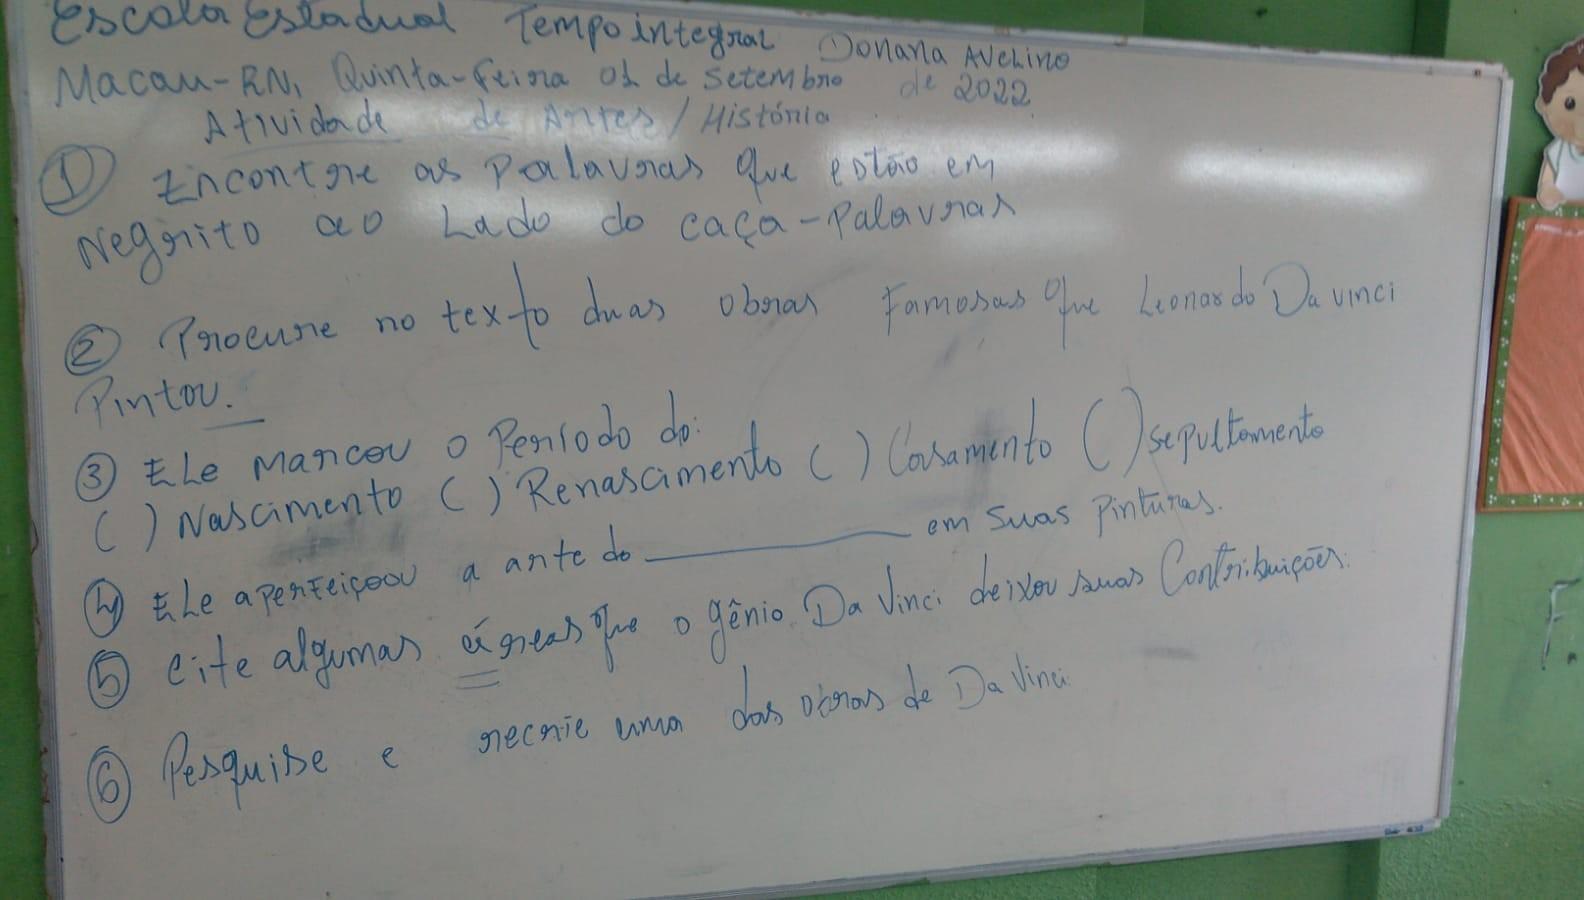 Escola Estadual Tempo integral Donana Avelino
Macau-RN, Quinta-feira 01 de Setembro de 2022
Atividade de Artes/História
① Encontre as palavras que estão em
Negrito ao Lado do caça-palavras
② Procure no texto duas obras Famosas que Leonardo Da vinci
Pintou.
③ Ele marcou o Período do:
( ) Nascimento ( ) Renascimento ( ) Casamento ( ) sepultamento
④ Ele aperfeiçoou a arte do __________ em suas Pinturas.
⑤ Cite algumas áreas que o gênio Da Vinci deixou suas Contribuições.
⑥ Pesquise e recrie uma das obras de Da Vinci
F